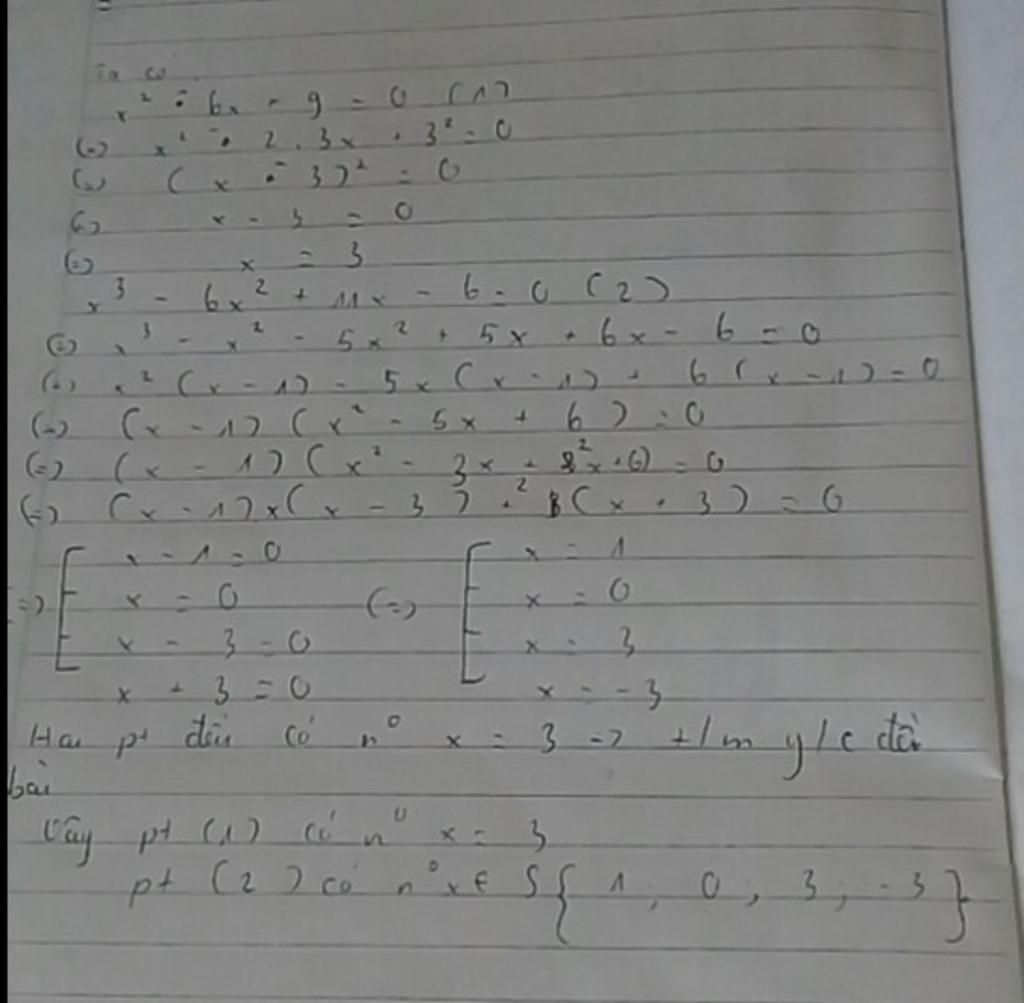 Ta có
x² - 6x + 9 = 0 (1)
(=) x² - 2 . 3x + 3² = 0
(=) ( x - 3 )² = 0
(=) x - 3 = 0
(=) x = 3
x³ - 6x² + 11x - 6 = 0 (2)
(=) x³ - x² - 5x² + 5x + 6x - 6 = 0
(=) x² (x - 1) - 5x (x - 1) + 6 (x - 1) = 0
(=) (x - 1) (x² - 5x + 6 ) = 0
(=) (x - 1) (x² - 3x + 2x + 6) = 0
(=) (x - 1) x (x - 3 ) + 2 (x + 3 ) = 0
=) [ x - 1 = 0 (=) [ x = 1
x = 0 x = 0
x - 3 = 0 x = 3
x + 3 = 0 x = -3
Hai pt đều có n⁰ x = 3 -> t/m y/c đề
bài
Vậy pt (1) có n⁰ x = 3
pt (2) có n⁰ x ∈ S { 1, 0, 3, -3 }